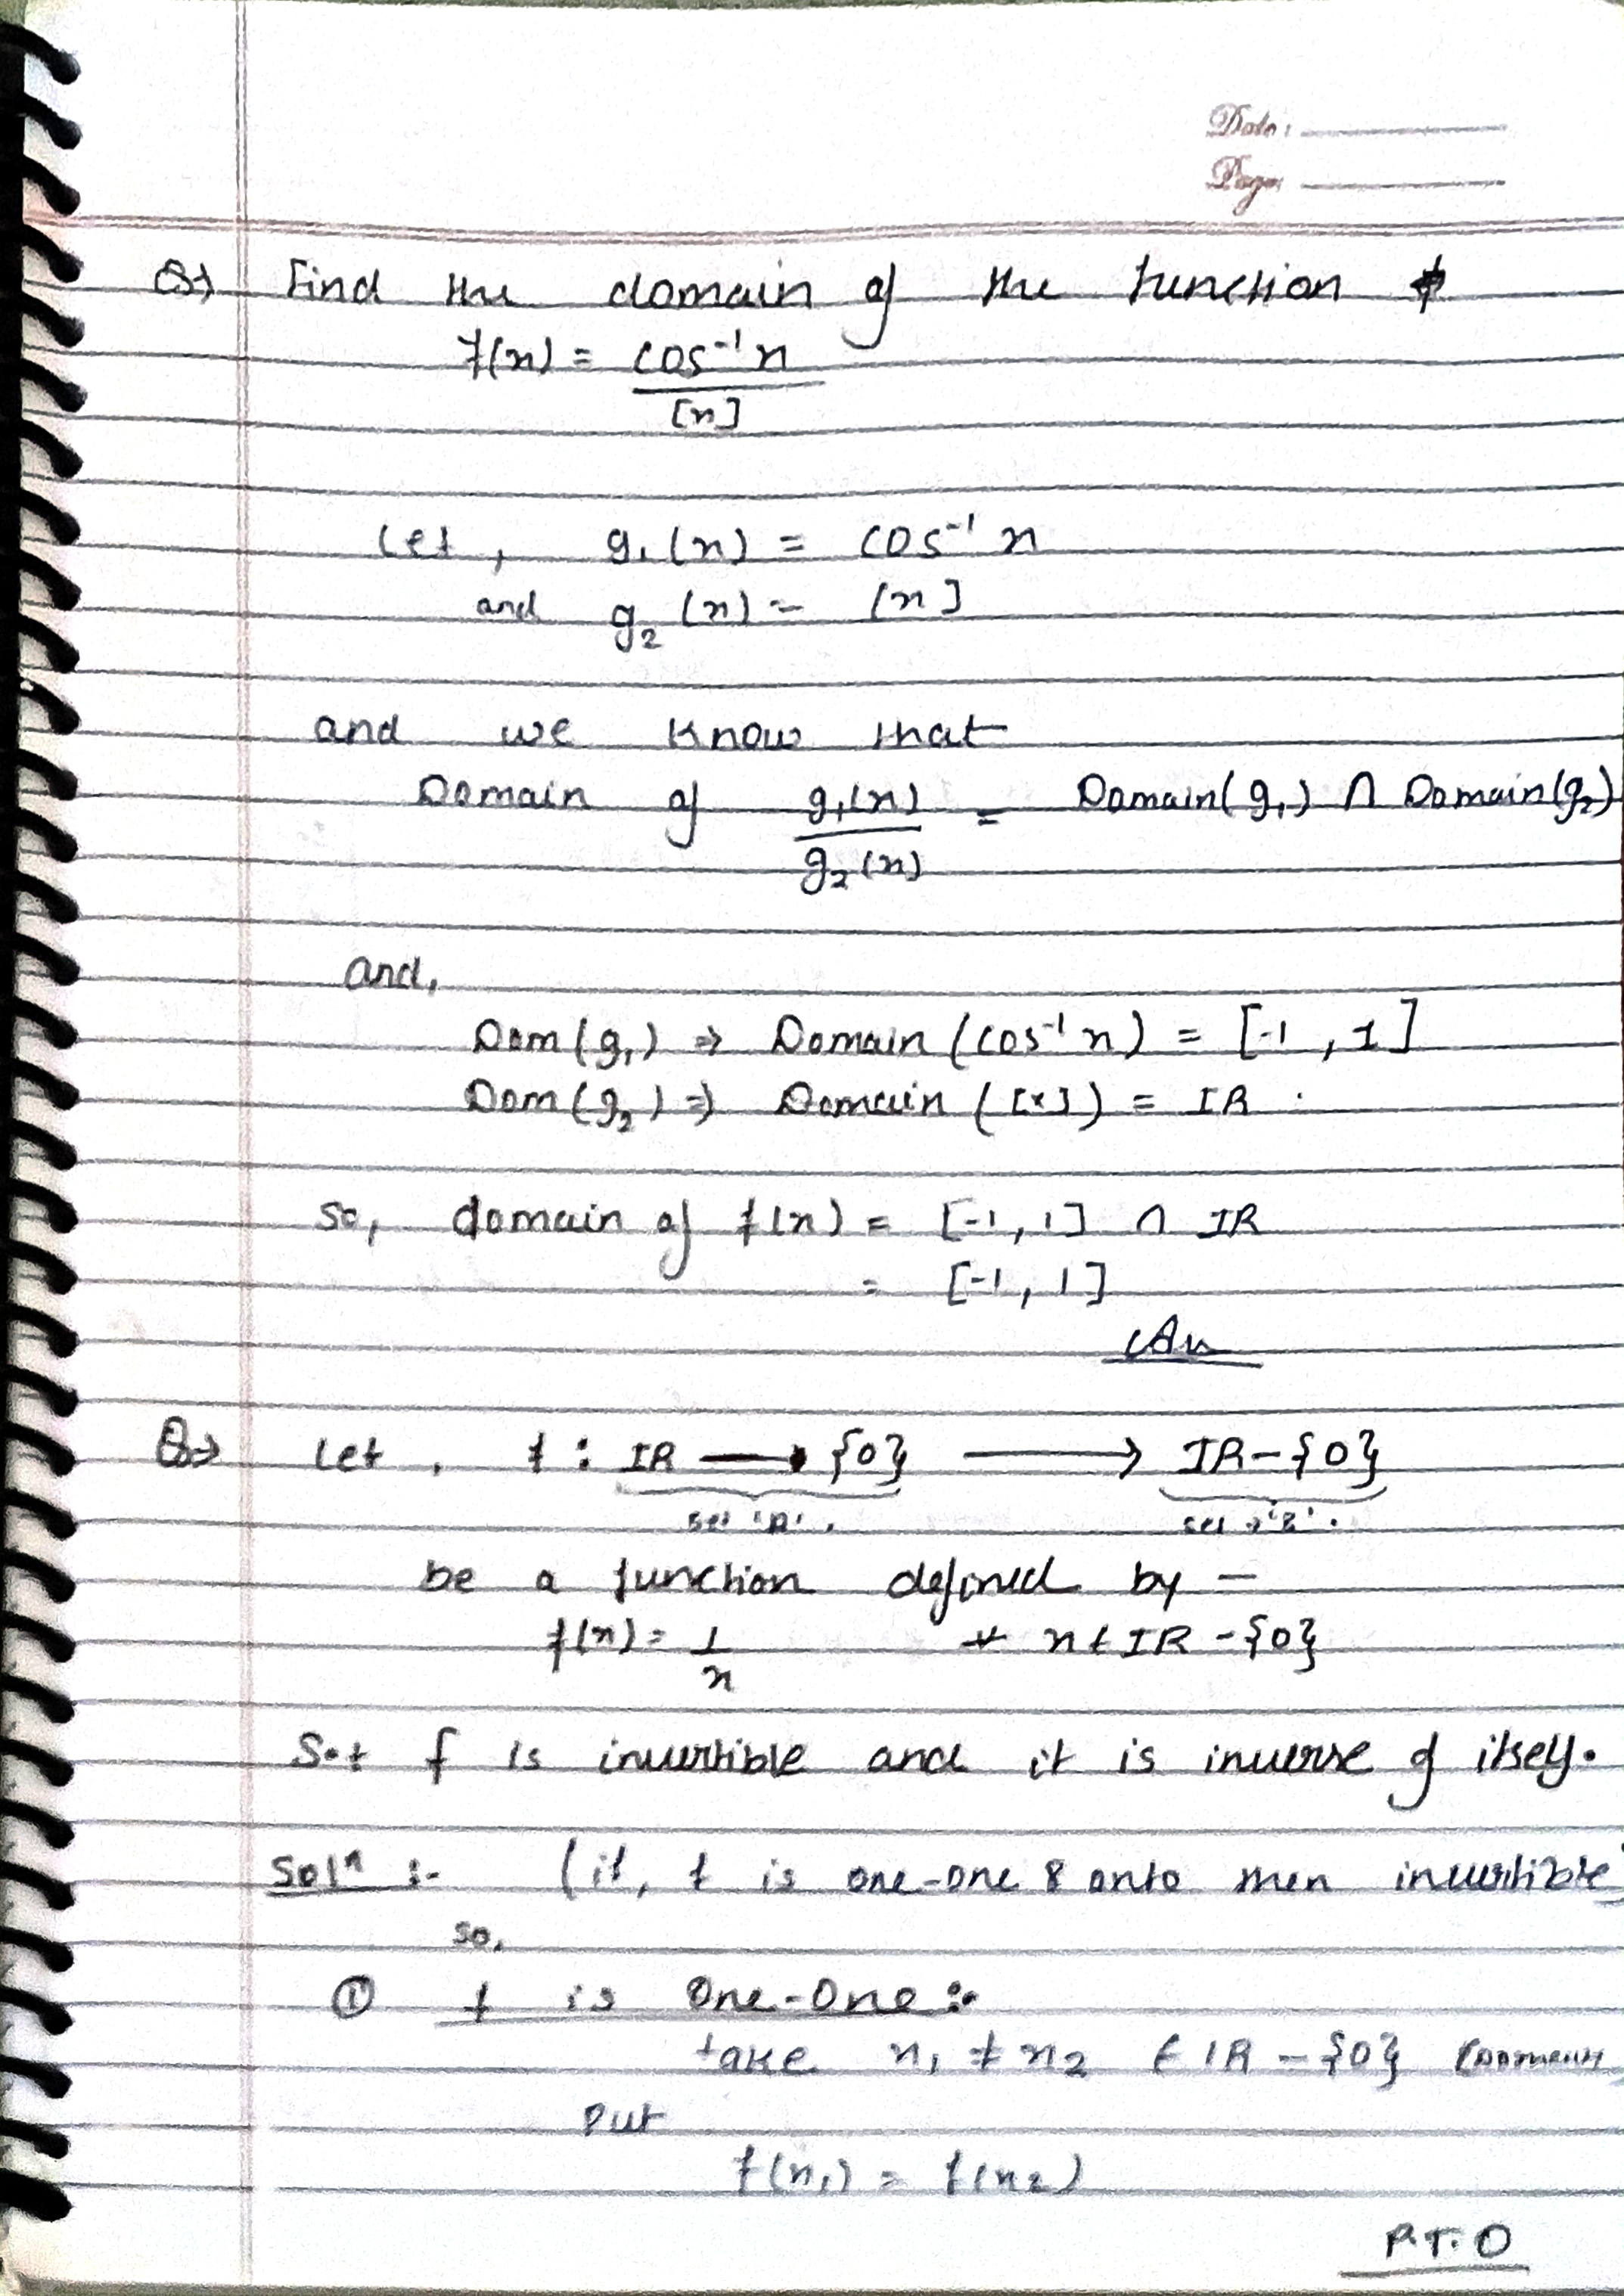 Date:
Page:
Q→ Find the domain of the function
f(x) = cos⁻¹x
[x]
Let, g₁(x) = cos⁻¹x
and g₂(x) = [x]
and we know that
Domain of g₁(x) = Domain(g₁) ∩ Domain(g₂)
g₂(x)
and,
Dom(g₁) ⇒ Domain (cos⁻¹x) = [-1, 1]
Dom(g₂) ⇒ Domain ([x]) = IR.
so, domain of f(x) = [-1, 1] ∩ IR
= [-1, 1]
Q⇒ Let, f : IR → {0} ⟶ IR-{0}
set 'A'. set 'B'.
be a function defined by -
f(x) = 1 ∀ x ∈ IR - {0}
x
S.t f is invertible and it is inverse of itself.
Solⁿ :- (if, f is one-one & onto then invertible)
so,
① f is One-One :-
take x₁ ≠ x₂ ∈ IR - {0} (Domain)
Put
f(x₁) = f(x₂)
P.T.O